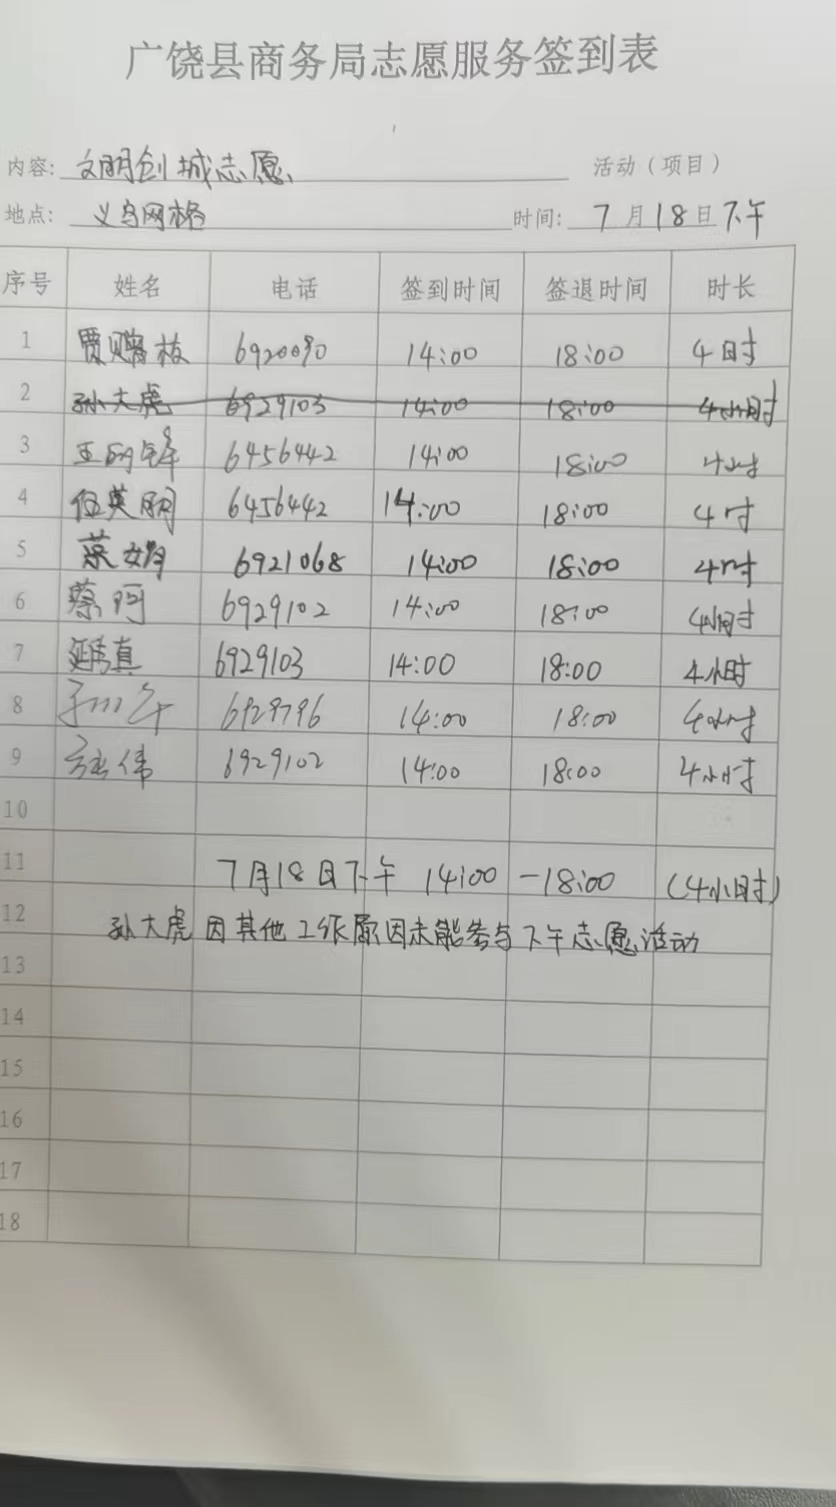 广饶县商务局志愿服务签到表
内容: 文明创城志愿 活动（项目）
地点: 义乌网格 时间: 7月18日下午
序号 姓名 电话 签到时间 签退时间 时长
1 6920090 14:00 18:00 4时
2 孙大虎 6929103 14:00 18:00 4小时
3 6456442 14:00 18:00 4小时
4 6456442 14:00 18:00 4时
5 6921068 14:00 18:00 4时
6 蔡 6929102 14:00 18:00 4小时
7 延秀真 6929103 14:00 18:00 4小时
8 6929796 14:00 18:00 4小时
9 张伟 6929102 14:00 18:00 4小时
10
11 7月18日下午 14:00-18:00 (4小时)
12 孙大虎因其他工作原因未能参与下午志愿活动
13
14
15
16
17
18